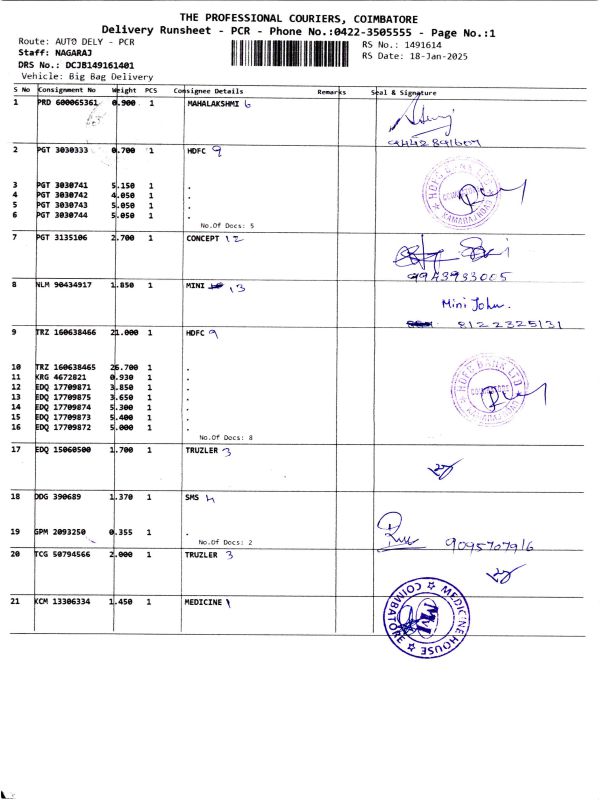 THE PROFESSIONAL COURIERS, COIMBATORE
Delivery Runsheet - PCR - Phone No.:0422-3505555 - Page No.:1
Route: AUTO DELY - PCR
RS No.: 1491614
Staff: NAGARAJ
RS Date: 18-Jan-2025
DRS No.: DCJB149161401
Vehicle: Big Bag Delivery
S No Consignment No Weight PCS Consignee Details Remarks Seal & Signature
1 PRD 600065361 0.900 1 MAHALAKSHMI 6
2 PGT 3030333 0.700 1 HDFC 9
3 PGT 3030741 5.150 1 .
4 PGT 3030742 4.050 1 .
5 PGT 3030743 5.050 1 .
6 PGT 3030744 5.050 1 .
No.Of Docs: 5
7 PGT 3135106 2.700 1 CONCEPT 12
9943933005
8 NLM 90434917 1.850 1 MINI 13
Mini John.
8122325131
9 TRZ 160638466 21.000 1 HDFC 9
10 TRZ 160638465 26.700 1 .
11 KRG 4672821 0.930 1 .
12 EDQ 17709871 3.850 1 .
13 EDQ 17709875 3.650 1 .
14 EDQ 17709874 5.300 1 .
15 EDQ 17709873 5.400 1 .
16 EDQ 17709872 5.000 1 .
HDFC BANK LTD
No.Of Docs: 8
17 EDQ 15060500 1.700 1 TRUZLER 3
18 DDG 390689 1.370 1 SMS 4
19 GPM 2093250 0.355 1 .
No.Of Docs: 2
9095707916
20 TCG 50794566 2.000 1 TRUZLER 3
21 KCM 13306334 1.450 1 MEDICINE 1
MEDICINE HOUSE
COIMBATORE